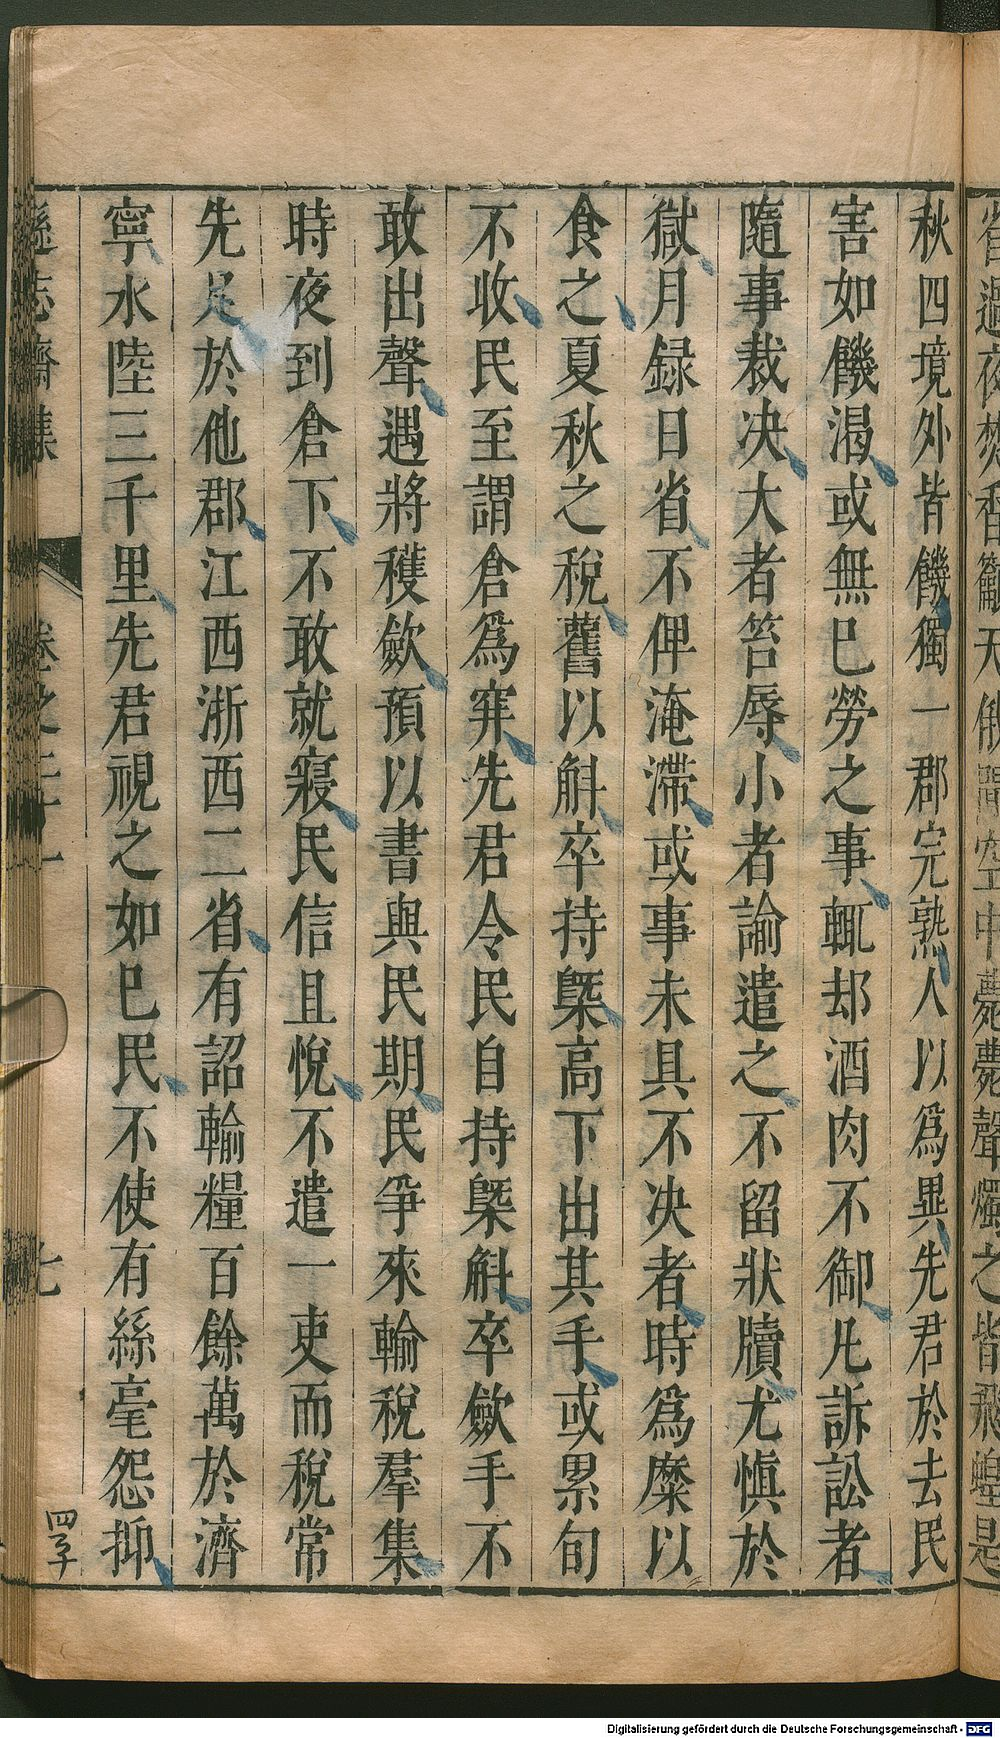 宵遁夜焚香籲天俄聞空中薨薨聲燭之皆飛蝗是
秋四境外皆饑獨一郡完熟人以爲異先君於去民
害如饑渴或無已勞之事輒却酒肉不御凡訴訟者
隨事裁决大者笞辱小者諭遣之不留狀牘尤慎於
獄月録日省不俾淹滯或事未具不决者時爲糜以
食之夏秋之稅舊以斛卒持槩高下出其手或累旬
不收民至謂倉爲穽先君令民自持槩斛卒歛手不
敢出聲遇將穫歛預以書與民期民爭來輸稅羣集
時夜到倉下不敢就寢民信且悅不遣一吏而稅常
先足於他郡江西浙西二省有詔輸糧百餘萬於濟
寧水陸三千里先君視之如已民不使有絲毫怨抑
遜志齋集 卷之二十一 七
四子
Digitalisierung gefördert durch die Deutsche Forschungsgemeinschaft - DFG